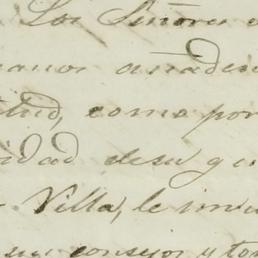 Los Señores
anos añaden
tud, como por
idad desu qu
Villa, le invi
su consejo y to